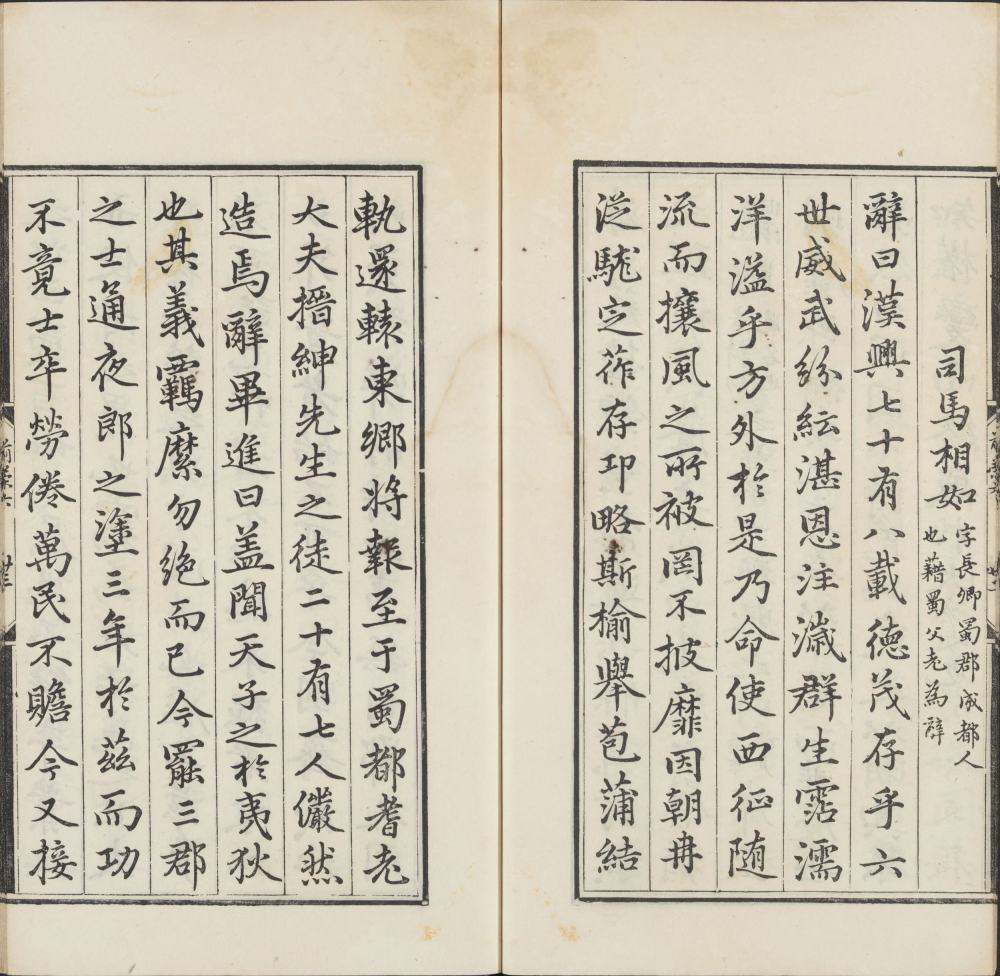 司馬相如字長卿蜀郡成都人
也藉蜀父老為辭
辭曰漢興七十有八載德茂存乎六
世威武紛紜湛恩汪濊群生霑濡
洋溢乎方外於是乃命使西征随
流而攘風之所被罔不披靡因朝冉
從駹定莋存邛略斯榆舉苞蒲結
軌還轅東鄉将報至于蜀都耆老
大夫搢紳先生之徒二十有七人儼然
造焉辭畢進曰盖聞天子之於夷狄
也其義羈縻勿絶而已今罷三郡
之士通夜郎之塗三年於茲而功
不竟士卒勞倦萬民不贍今又接